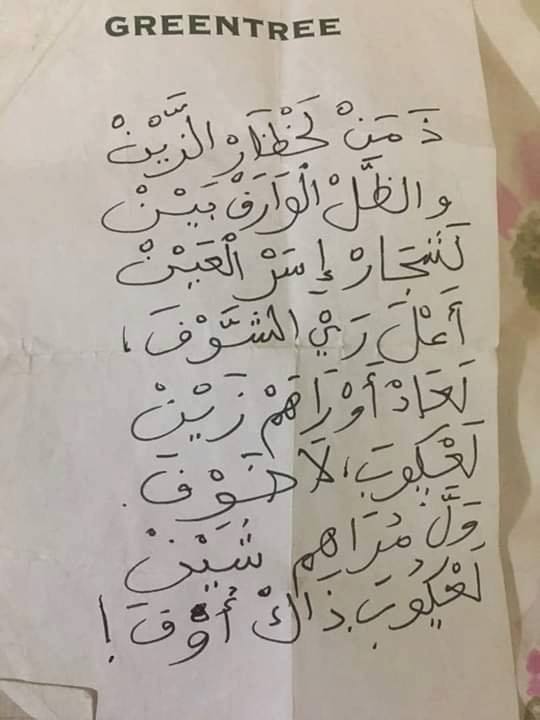 GREENTREE
ذَ مَنْ لَخْظَارْ الزَّيْنْ
والظَّلْ الْوَارَفْ بَيْنْ
لَشْجَارْ إسَرْ الْعَيْنْ
أَعْلَ رَيْ الشَّوْفَ،
لَعَادْ أَوْرَاهُمْ زَيْنْ
لَعْكُوبَ، لَا خَوْفَ.
وَلَّ مُرَاهِم شَيْنْ
لَعْكُوبَ ذَاكْ أُوْفَ!